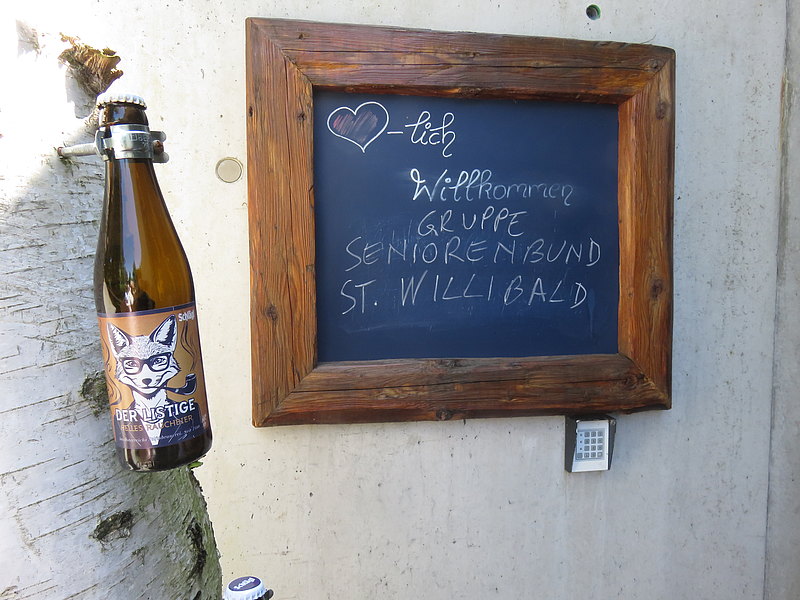 -lich
Willkommen
GRUPPE
SENIORENBUND
ST. WILLIBALD
Schlägl
DER LISTIGE
HELLES RAUCHBIER